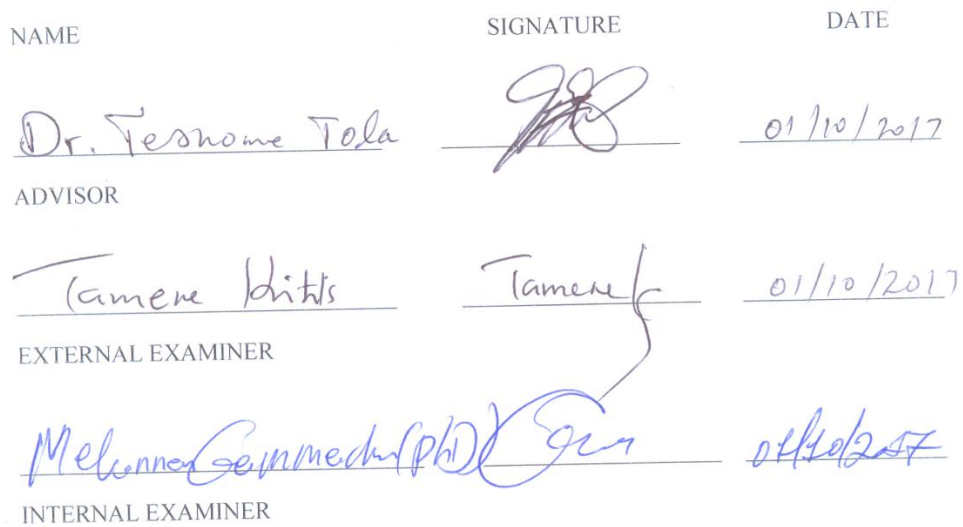 NAME SIGNATURE DATE
Dr. Teshome Tola 01/10/2017
ADVISOR
Tamene Tamene 01/10/2017
EXTERNAL EXAMINER
(PhD) 01/10/2017
INTERNAL EXAMINER